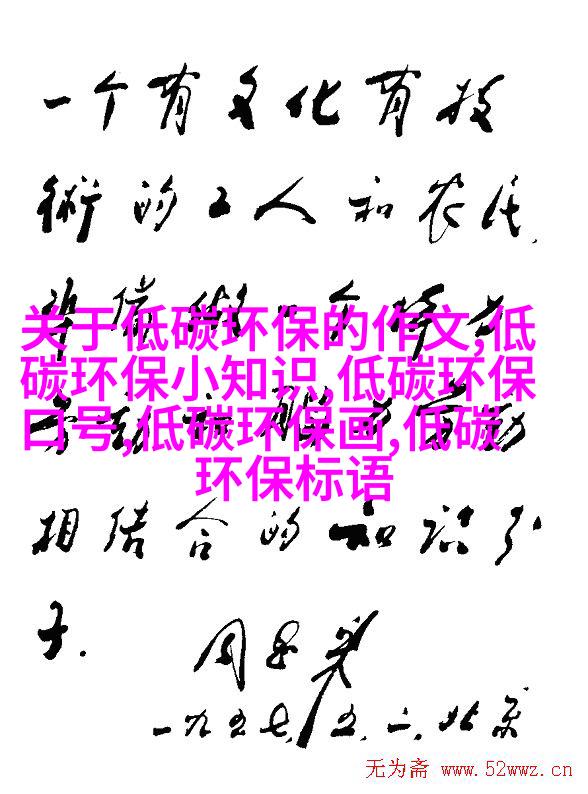 一个有文化有技
術的工人和农民,
关于低碳环保的作文,低
碳环保小知识,低碳环保
口号,低碳环保画,低碳
环保标语
相结合的知识分
子.
周恩来
一九五七.五.一.北京
无为斋 www.52wwz.cn